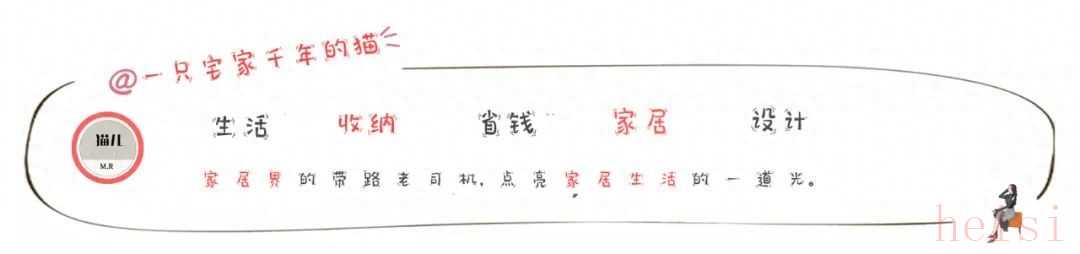 @一只宅家千年的猫
生活 收纳 省钱 家居 设计
猫儿
M.R
家居界的带路老司机,点亮家居生活的一道光。
heisi